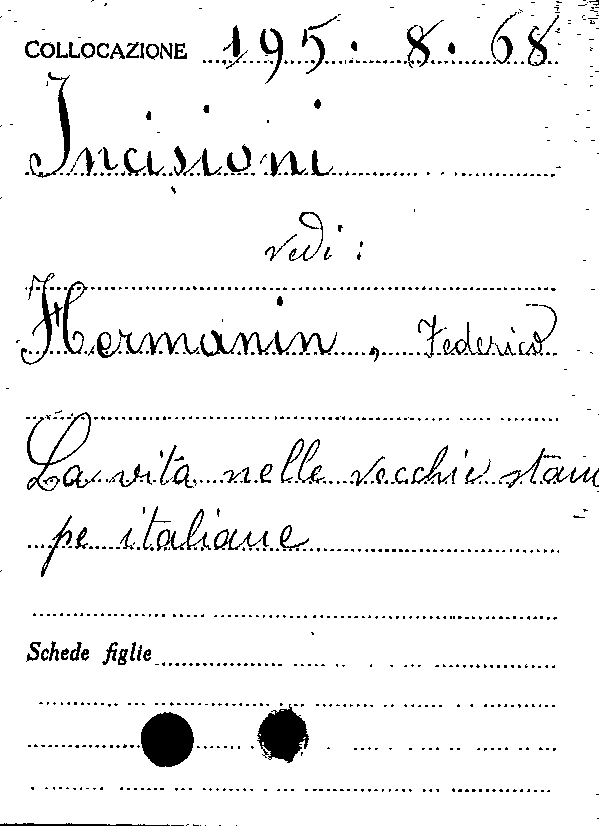 COLLOCAZIONE 195.8.68
Incisioni
vedi:
Hermanin, Federico
La vita nelle vecchie stam
pe italiane
Schede figlie